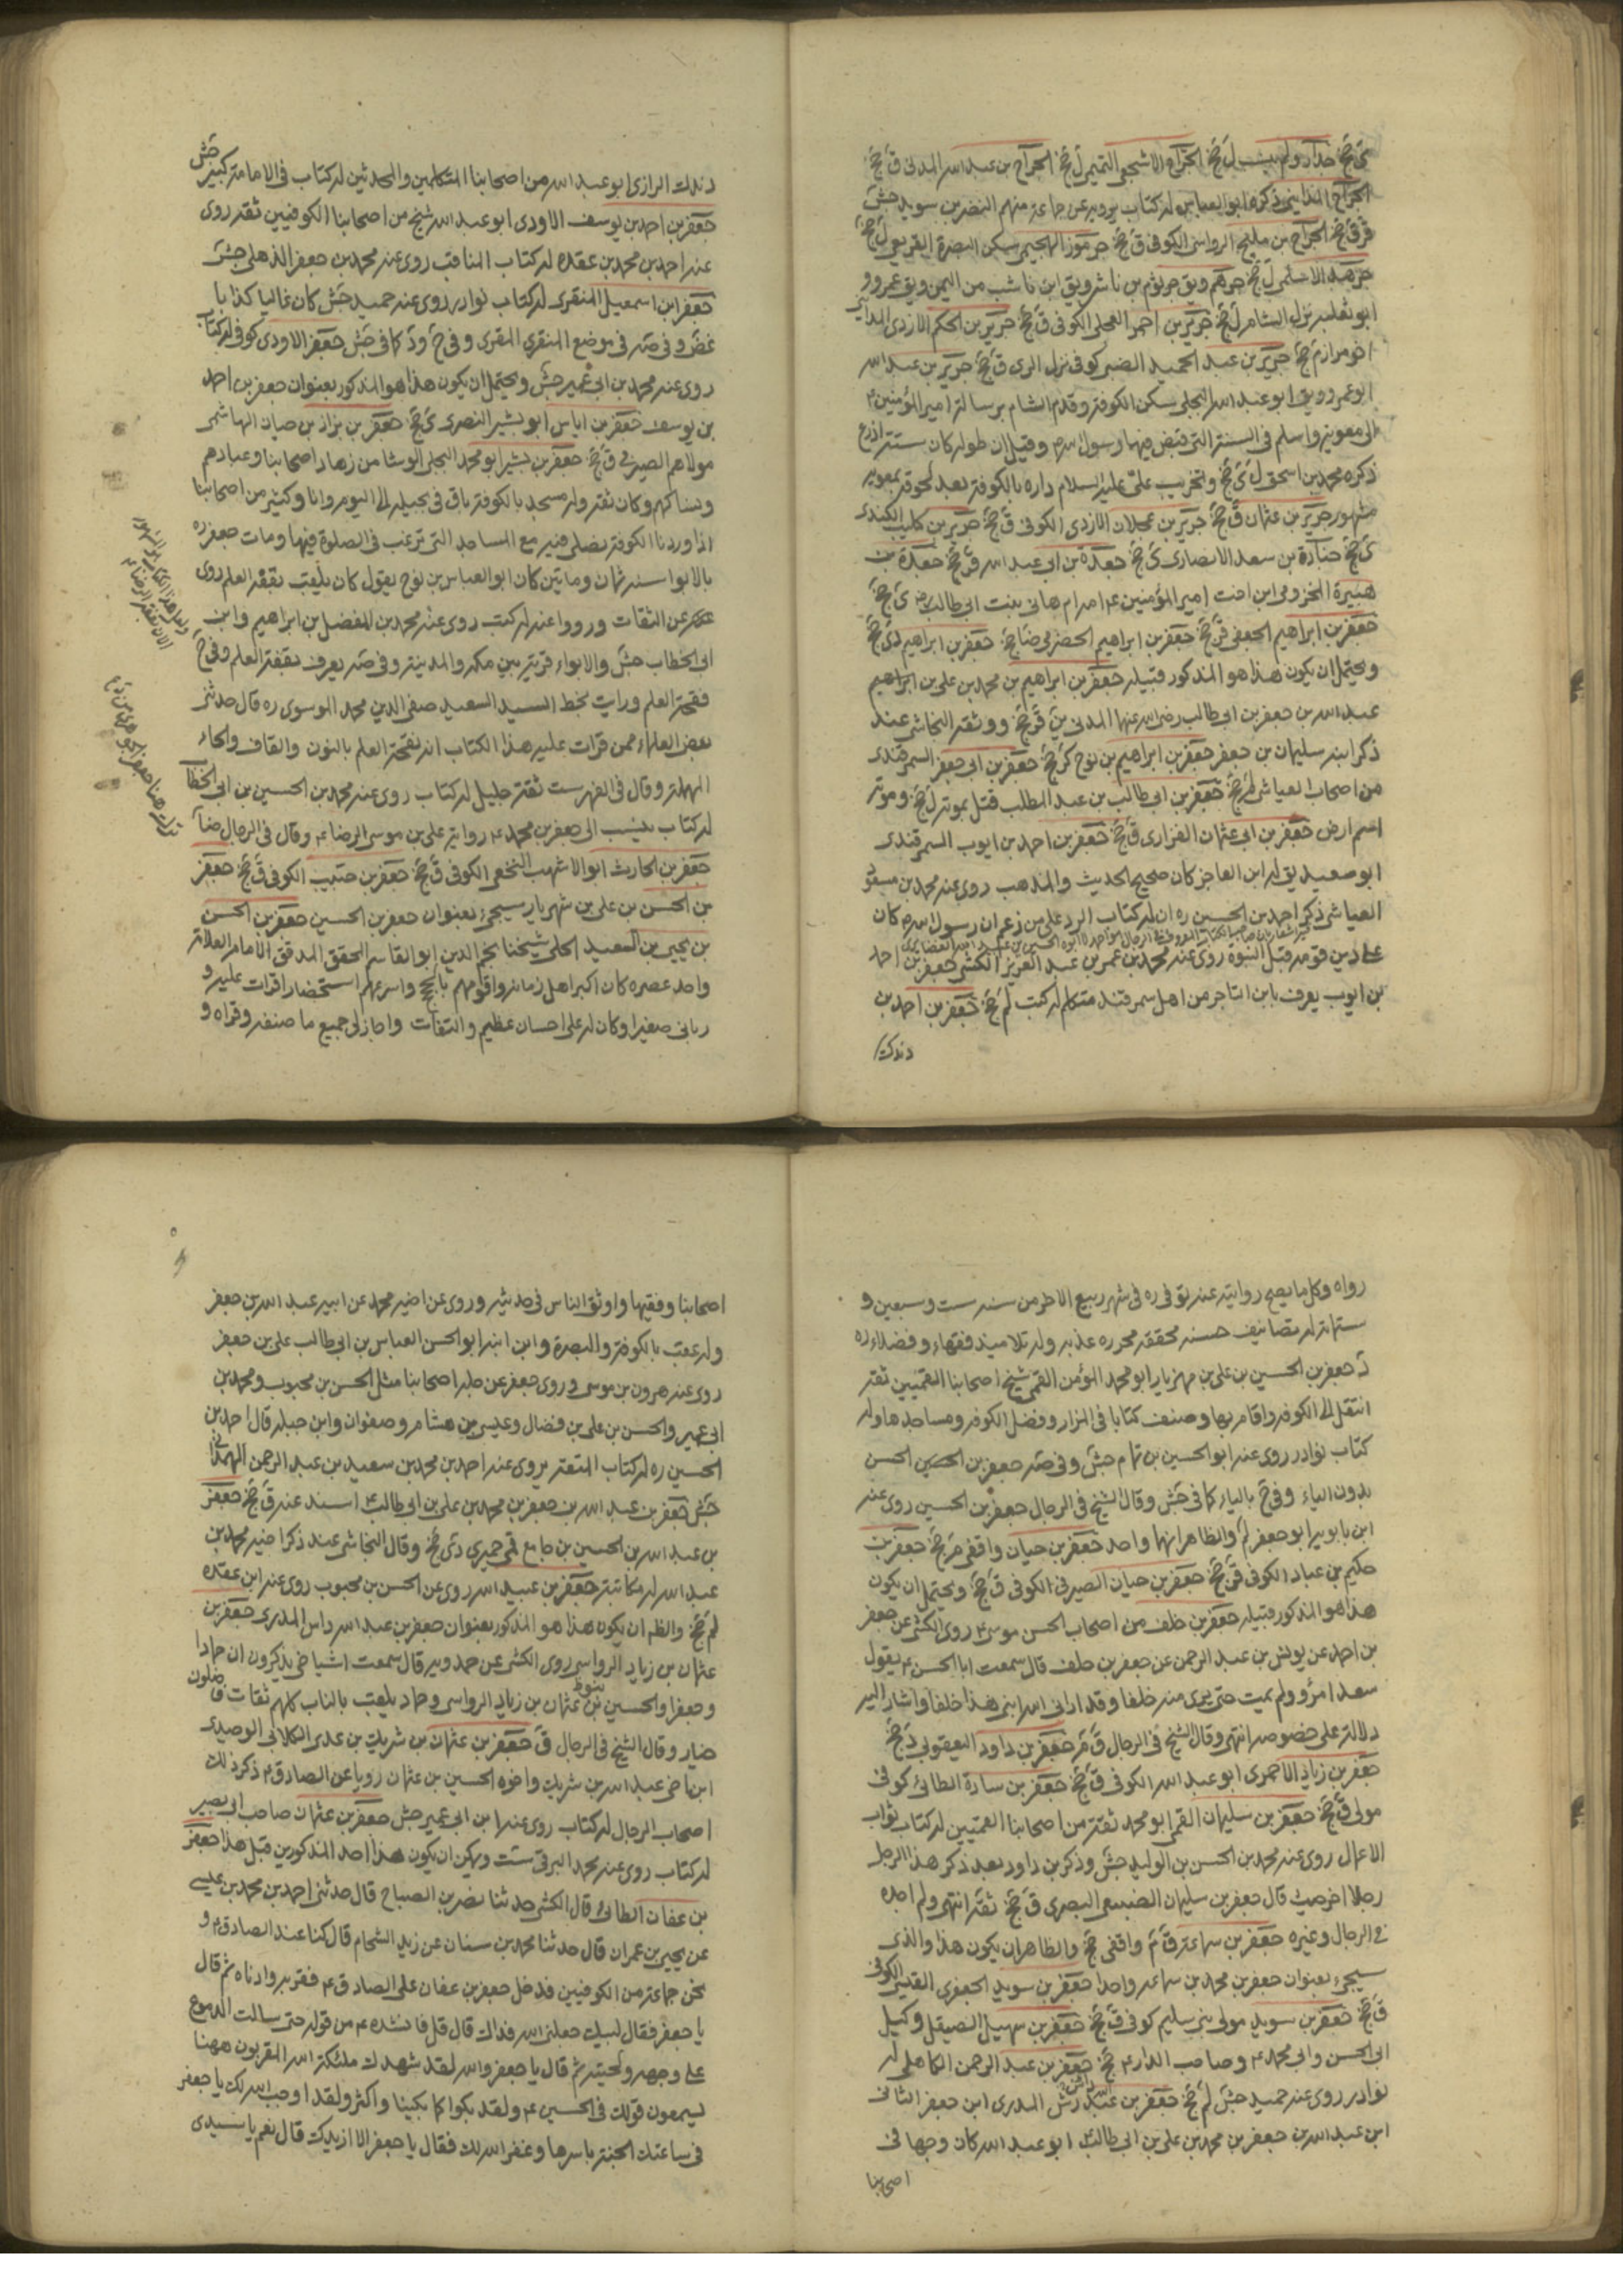 ى جخ جدار ولم ينسب ل جخ الجراح الاشجعى التميمى ل جخ الجراح بن عبد الله المدنى ق جخ
الجراح المدائنى ذكره ابو العباس له كتاب يرويه عن جماعة منهم النضر بن سويد جش
قر ق جخ الجراح بن مليح الرواسى الكوفى ق جخ جرموز الهجيمى سكن البصرة القريعى ل جخ
جرهد الاسلمى ل جخ جرهم ويق جرثوم بن ناشر ويق ابن ناشب من اليمن ويق عمرو و
ابو ثعلبة نزل الشام ل جخ جرير بن احمر العجلى الكوفى ق جخ جرير بن الحكم الازدى المدائنى
اخو مرازم جخ جرير بن عبد الحميد الضبى كوفى نزل الرى ق جخ جرير بن عبد الله
ابو عمرو ويق ابو عبد الله البجلى سكن الكوفة وقدم الشام برسالة امير المؤمنين ع
الى معوية واسلم فى السنة التى قبض فيها رسول الله ص وقيل ان طوله كان ستة اذرع
ذكره محمد بن اسحق ل ى جخ وتخريب على عليه السلام داره بالكوفة بعد لحوقه بمعوية
مشهور جرير بن عثمان ق جخ جرير بن عجلان الازدى الكوفى ق جخ جرير بن كليب الكندى
ى جخ جنادة بن سعد الانصارى ى جخ جعدة بن ابى عبد الله قر جخ جعدة بن
هبيرة المخزومى ابن اخت امير المؤمنين ع امه ام هانى بنت ابى طالب ى جخ
جعفر بن ابراهيم الجعفى قر جخ جعفر بن ابراهيم الحضرمى ضا جخ جعفر بن ابراهيم دى جخ
ويحتمل ان يكون هذا هو المذكور قبيله جعفر بن ابراهيم بن محمد بن على بن ابراهيم
عبد الله بن جعفر بن ابى طالب رضى الله عنها المدنى ين ق جخ ووثقه النجاشى عند
ذكر ابنه سليمان بن جعفر جعفر بن ابراهيم بن نوح كر جخ جعفر بن ابى جعفر السمرقندى
من اصحاب العياشى لم جخ جعفر بن ابى طالب بن عبد المطلب قتل بموتة ل جخ وموتة
اسم ارض جعفر بن ابى عثمان الفزارى ق جخ جعفر بن احمد بن ايوب السمرقندى
ابو سعيد يق له ابن العاجز كان صحيح الحديث والمذهب روى عنه محمد بن مسعود
العياشى ذكر احمد بن الحسين ره ان له كتاب الرد على من زعم ان رسول الله ص كان
على دين قومه قبل النبوة روى عنه محمد بن عمر بن عبد العزيز الكشى جعفر بن احمد
بن ايوب يعرف بابن التاجر من اهل سمرقند متكلم له كتب لم جخ جعفر بن احمد بن
وندك
وندك الرازى ابو عبد الله من اصحابنا المتكلمين والمحدثين له كتاب فى الامامة كبير جش
جعفر بن احمد بن يوسف الاودى ابو عبد الله شيخ من اصحابنا الكوفيين ثقة روى
عنه احمد بن محمد بن عقده له كتاب المناقب روى عنه محمد بن جعفر الذهلى جش
جعفر ابن اسمعيل المنقرى له كتاب نوادر روى عنه حميد جش كان غاليا كذابا
غض وفى صه فى موضع المنقرى المقرى وفى ح ود كما فى جش جعفر الاودى كوفى له كتاب
روى عنه محمد بن ابى عمير جش ويحتمل ان يكون هذا هو المذكور بعنوان جعفر بن احمد
بن يوسف جعفر بن اياس ابو بشير النصرى ى جخ جعفر بن بزاز بن حيان الهاشمى
مولاهم الصيرفى ق جخ جعفر بن بشير ابو محمد البجلى الوشا من زهاد اصحابنا وعبادهم
ونساكهم وكان ثقة وله مسجد بالكوفة باق فى بجيلة الى اليوم وانا وكثير من اصحابنا
اذا وردنا الكوفة نصلى فيه مع المساجد التى ترغب فى الصلوة فيها ومات جعفر ره
بالابوا سنة ثمان ومأتين كان ابو العباس بن نوح يقول كان يلقب بقفة العلم روى
عن الثقات ورووا عنه له كتب روى عنه محمد بن المفضل بن ابراهيم وابن
ابى الخطاب جش والابواء قرية بين مكه والمدينة وفى صه يعرف بقفة العلم وفى ح
فقحة العلم ورايت بخط السيد السعيد صفى الدين محمد الموسوى ره قال حدثنى
بعض العلماء ممن قرات عليه هذا الكتاب انه نفحة العلم بالنون والقاف والحاء
المهملة وقال فى الفهرست ثقة جليل له كتاب روى عنه محمد بن الحسين بن ابى الخطاب
له كتاب ينسب الى جعفر بن محمد ع رواية على بن موسى الرضا ع وقال فى الرجال ضا
جعفر بن الحارث ابو الاشهب النخعى الكوفى ق جخ جعفر بن حبيب الكوفى ق جخ جعفر
بن الحسن بن على بن شهريار سيجئ بعنوان جعفر بن الحسين جعفر بن الحسن
بن يحيى بن سعيد الحلى شيخنا نجم الدين ابو القاسم المحقق المدقق الامام العلامة
واحد عصره كان اكبر اهل زمانه واقومهم بالحجج واسرعهم استحضارا قرات عليه و
ربانى صغيرا وكان له على احسان عظيم والتفات واجاز لى جميع ما صنفه وقراه و
رواه وكل ما يصح روايته عنه توفى ره فى شهر ربيع الاخر من سنة ست وسبعين و
ستمائة له تصانيف حسنه محققه محرره عذبه وله تلاميذ فقهاء وفضلاء ره
د جعفر بن الحسين بن على بن مهزيار ابو محمد المؤمن القمى شيخ اصحابنا القميين ثقة
انتقل الى الكوفه واقام بها وصنف كتابا فى المزار وفضل الكوفه ومساجدها وله
كتاب نوادر روى عنه ابو الحسين بن تمام جش وفى صه جعفر بن الحسين الحسن
بدون الياء وفى ح بالياء كما فى جش وقال الشيخ فى الرجال جعفر بن الحسين روى عنه
ابن بابويه ابو جعفر لم والظاهر انهما واحد جعفر بن حيان واقفى م جخ جعفر بن
حكيم بن عباد الكوفى ق جخ جعفر بن حيان الصيرفى الكوفى ق جخ ويحتمل ان يكون
هذا هو المذكور قبيله جعفر بن خلف من اصحاب الحسن موسى ع روى الكشى عن جعفر
بن احمد عن يونس بن عبد الرحمن عن جعفر بن خلف قال سمعت ابا الحسن ع يقول
سعد امرؤ ولم يمت حتى يرى منه خلفا وقد ارانى الله ابنى هذا خلفا واشار اليه
دلالة على خصوصه انتهى وقال الشيخ فى الرجال ق م جعفر بن داود اليعقوبى د جخ
جعفر بن زياد الاحمرى ابو عبد الله الكوفى ق جخ جعفر بن سارة الطائى كوفى
مولى ق جخ جعفر بن سليمان القمى ابو محمد ثقة من اصحابنا القميين له كتاب ثواب
الاعمال روى عنه محمد بن الحسن بن الوليد جش وذكر بن داود بعد ذكر هذا الرجل
رجلا اخر حيث قال جعفر بن سليمان الضبيعى البصرى ق جخ ثقة انتهى ولم اجده
فى الرجال وغيره جعفر بن سماعة ق م واقفى جخ والظاهر ان يكون هذا والذى
سيجئ بعنوان جعفر بن محمد بن سماعه واحدا جعفر بن سويد الجعفرى القيسى الكوفى
ق جخ جعفر بن سويد مولى بنى سليم كوفى ق جخ جعفر بن سهيل الصيقل وكيل
ابى الحسن وابى محمد ع وصاحب الدار ع جخ جعفر بن عبد الرحمن الكاهلى له
نوادر روى عنه حميد جش لم جخ جعفر بن عبد الله راس المدرى ابن جعفر الثانى
ابن عبد الله بن جعفر بن محمد بن على بن ابى طالب ابو عبد الله كان وجها فى
اصحابنا
اصحابنا وفقيها واوثق الناس فى حديثه وروى عن اخيه محمد عن ابيه عبد الله بن جعفر
وله عقب بالكوفة والبصرة وابن ابنه ابو الحسن العباس بن ابى طالب على بن جعفر
روى عنه هرون بن موسى وروى جعفر عن جلة اصحابنا مثل الحسن بن محبوب ومحمد بن
ابى عمير والحسن بن على بن فضال وعبيس بن هشام وصفوان وابن جبلة قال احمد بن
الحسين ره له كتاب المتعة يروى عنه احمد بن محمد بن سعيد بن عبد الرحمن الهمدانى
جش جعفر بن عبد الله بن جعفر بن محمد بن على بن ابى طالب ع اسند عنه ق جخ جعفر
بن عبد الله بن الحسين بن جامع قمى حميرى دى جخ وقال النجاشى عند ذكر اخيه محمد بن
عبد الله له مكاتبة جعفر بن عبيد الله روى عن الحسن بن محبوب روى عنه ابن عقده
لم جخ والظ ان يكون هذا هو المذكور بعنوان جعفر بن عبد الله راس المدرى جعفر بن
عثمان بن زياد الرواسى روى الكشى عن حمدويه قال سمعت اشياخى يذكرون ان حمادا
وجعفرا والحسين بنى عثمان بن زياد الرواسى وحماد يلقب بالناب كلهم ثقات فاضلون
خيار وقال الشيخ فى الرجال ق جعفر بن عثمان بن شريك بن عدى الكلابى الوحيدى
ابن اخى عبد الله بن شريك واخوه الحسين بن عثمان رويا عن الصادق ع ذكر ذلك
اصحاب الرجال له كتاب روى عنه ابن ابى عمير جش جعفر بن عثمان صاحب ابى بصير
له كتاب روى عنه محمد البرقى ست ويمكن ان يكون هذا احد المذكورين قبل هذا جعفر
بن عفان الطائى قال الكشى حدثنا نصر بن الصباح قال حدثنى احمد بن محمد بن عيسى
عن يحيى بن عمران قال حدثنا محمد بن سنان عن زيد الشحام قال كنا عند الصادق ع و
نحن جماعة من الكوفيين فدخل جعفر بن عفان على الصادق ع فقربه وادناه ثم قال
يا جعفر فقال لبيك جعلنى الله فداك قال قل فانشده ع من قوله حتى سالت الدموع
على وجهه ولحيته ثم قال يا جعفر والله لقد شهدك ملئكة الله المقربون ههنا
يسمعون قولك فى الحسين ع ولقد بكوا كما بكينا واكثر ولقد اوجب الله لك يا جعفر
فى ساعتك الجنة باسرها وغفر الله لك فقال يا جعفر الا ازيدك قال نعم يا سيدى